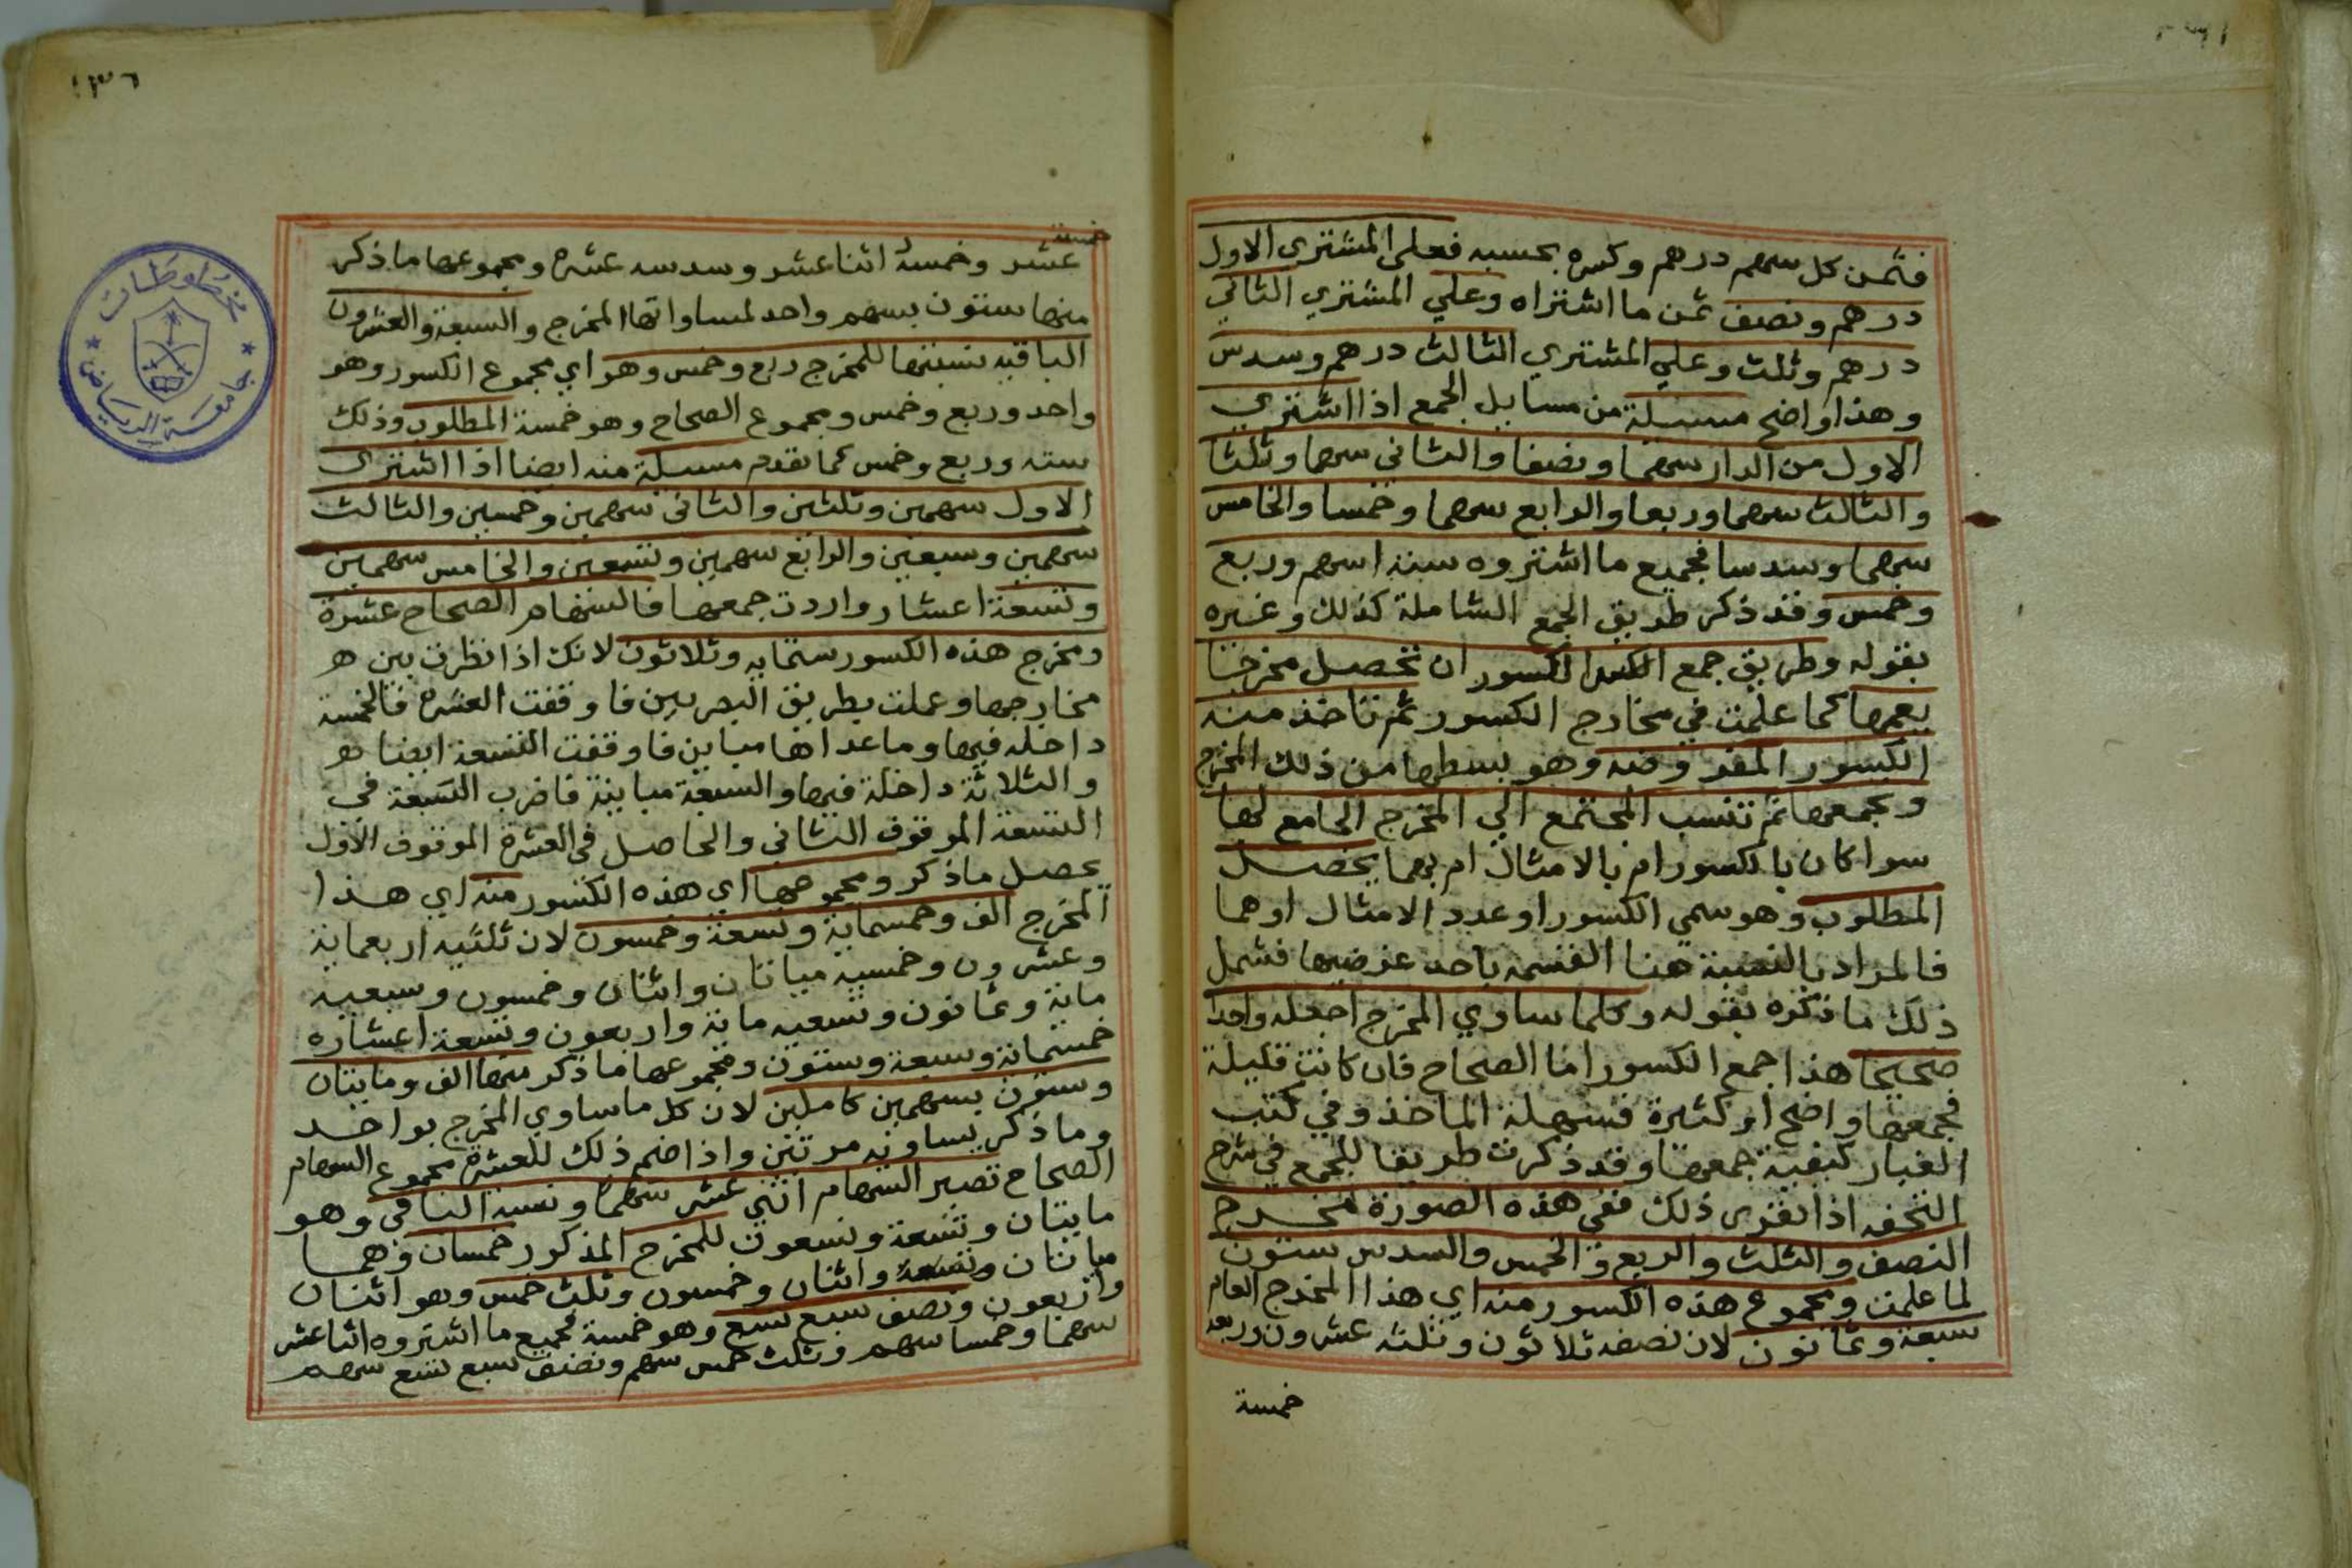 فثمن كل سهم درهم وكسره بحسبه فعلى المشتري الاول
درهم ونصف ثمن ما اشتراه وعلي المشتري الثاني
درهم وثلث وعلي المشتري الثالث درهم وسدس
وهذا واضح مسئلة من مسايل الجمع اذا اشتري
الاول من الدار سهما ونصفا والثاني سهما وثلثا
والثالث سهما وربعا والرابع سهما وخمسا والخامس
سهما وسدسا فجميع ما اشتروه ستة اسهم وربع
وخمس وقد ذكر طريق الجمع الشاملة كذلك وغيره
بقوله وطريق جمع الكسور ان تحصل مخرجا
يعمها كما علمت في مخارج الكسور ثم تاخذ منه
الكسور المفروضه وهو بسطها من ذلك المخرج
وتجمعها ثم تنسب المجتمع الي المخرج الجامع لها
سوا كان بالكسور ام بالامثال ام بهما يحصل
المطلوب وهو سمي الكسور او عدد الامثال او هما
فالمراد بالنسبة هنا القسمه باحد غرضيها فشمل
ذلك ما ذكره بقوله وكلما ساوي المخرج اجعله واحدا
صحيحا هذا جمع الكسور اما الصحاح فان كانت قليلة
فجمعها واضح او كثيرة فسهلة الماخذ وفي كتب
الغبار كيفية جمعها وقد ذكرت طريقا للجمع في شرح
التحفه اذا تقرر ذلك ففي هذه الصورة مخرج
النصف والثلث والربع والخمس والسدس ستون
لما علمت ومجموع هذه الكسور منه اي هذا المخرج العام
سبعة وثمانون لان نصفه ثلاثون وثلثه عشرون وربعه
خمسة
١٣٦
خمسة
عشر وخمسة اثنا عشر وسدسه عشرة ومجموعها ما ذكر
منها ستون بسهم واحد لمساواتها المخرج والسبعة والعشرون
الباقيه نسبتها للمخرج ربع وخمس وهو اي مجموع الكسور وهو
واحد وربع وخمس ومجموع الصحاح وهو خمسة المطلوب وذلك
سته وربع وخمس كما تقدم مسئلة منه ايضا اذا اشتري
الاول سهمين وثلثين والثاني سهمين وخمسين والثالث
سهمين وسبعين والرابع سهمين وتسعين والخامس سهمين
وتسعة اعشار واردت جمعها فالسهام الصحاح عشرة
ومخرج هذه الكسور ستمايه وثلاثون لانك اذا نظرت بين
مخارجها وعملت بطريق البصريين فاوقفت العشرة فالخمسة
داخله فيها وما عداها مباين فاوقفت التسعة ايضا
والثلاثة داخلة فيها والسبعة مباينة فاضرب السبعة في
التسعة الموقوف الثاني والحاصل في العشرة الموقوف الاول
يحصل ما ذكر ومجموعها اي هذه الكسور منه اي هذا
المخرج الف وخمسماية وتسعة وخمسون لان ثلثيه اربعماية
وعشرون وخمسيه مياتان واثنان وخمسون وسبعيه
ماية وثمانون وتسعيه ماية واربعون وتسعة اعشاره
خمسماية وسبعة وستون ومجموعها ما ذكر منها الف ومايتان
وستون بسهمين كاملين لان كل ما ساوي المخرج بواحد
وما ذكر يساويه مرتين واذا ضم ذلك للعشرة مجموع السهام
الصحاح تصير السهام اثني عشر سهما ونسبة الباقي وهو
مايتان وتسعة وتسعون للمخرج المذكور خمسان وهما
مياتان واثنان وخمسون وثلث خمس وهو اثنان
واربعون ونصف سبع تسع وهو خمسة فجميع ما اشتروه اثنا عشر
سهما وخمسا سهم وثلث خمس سهم ونصف سبع تسع سهم
مخطوطات
جامعة الرياض